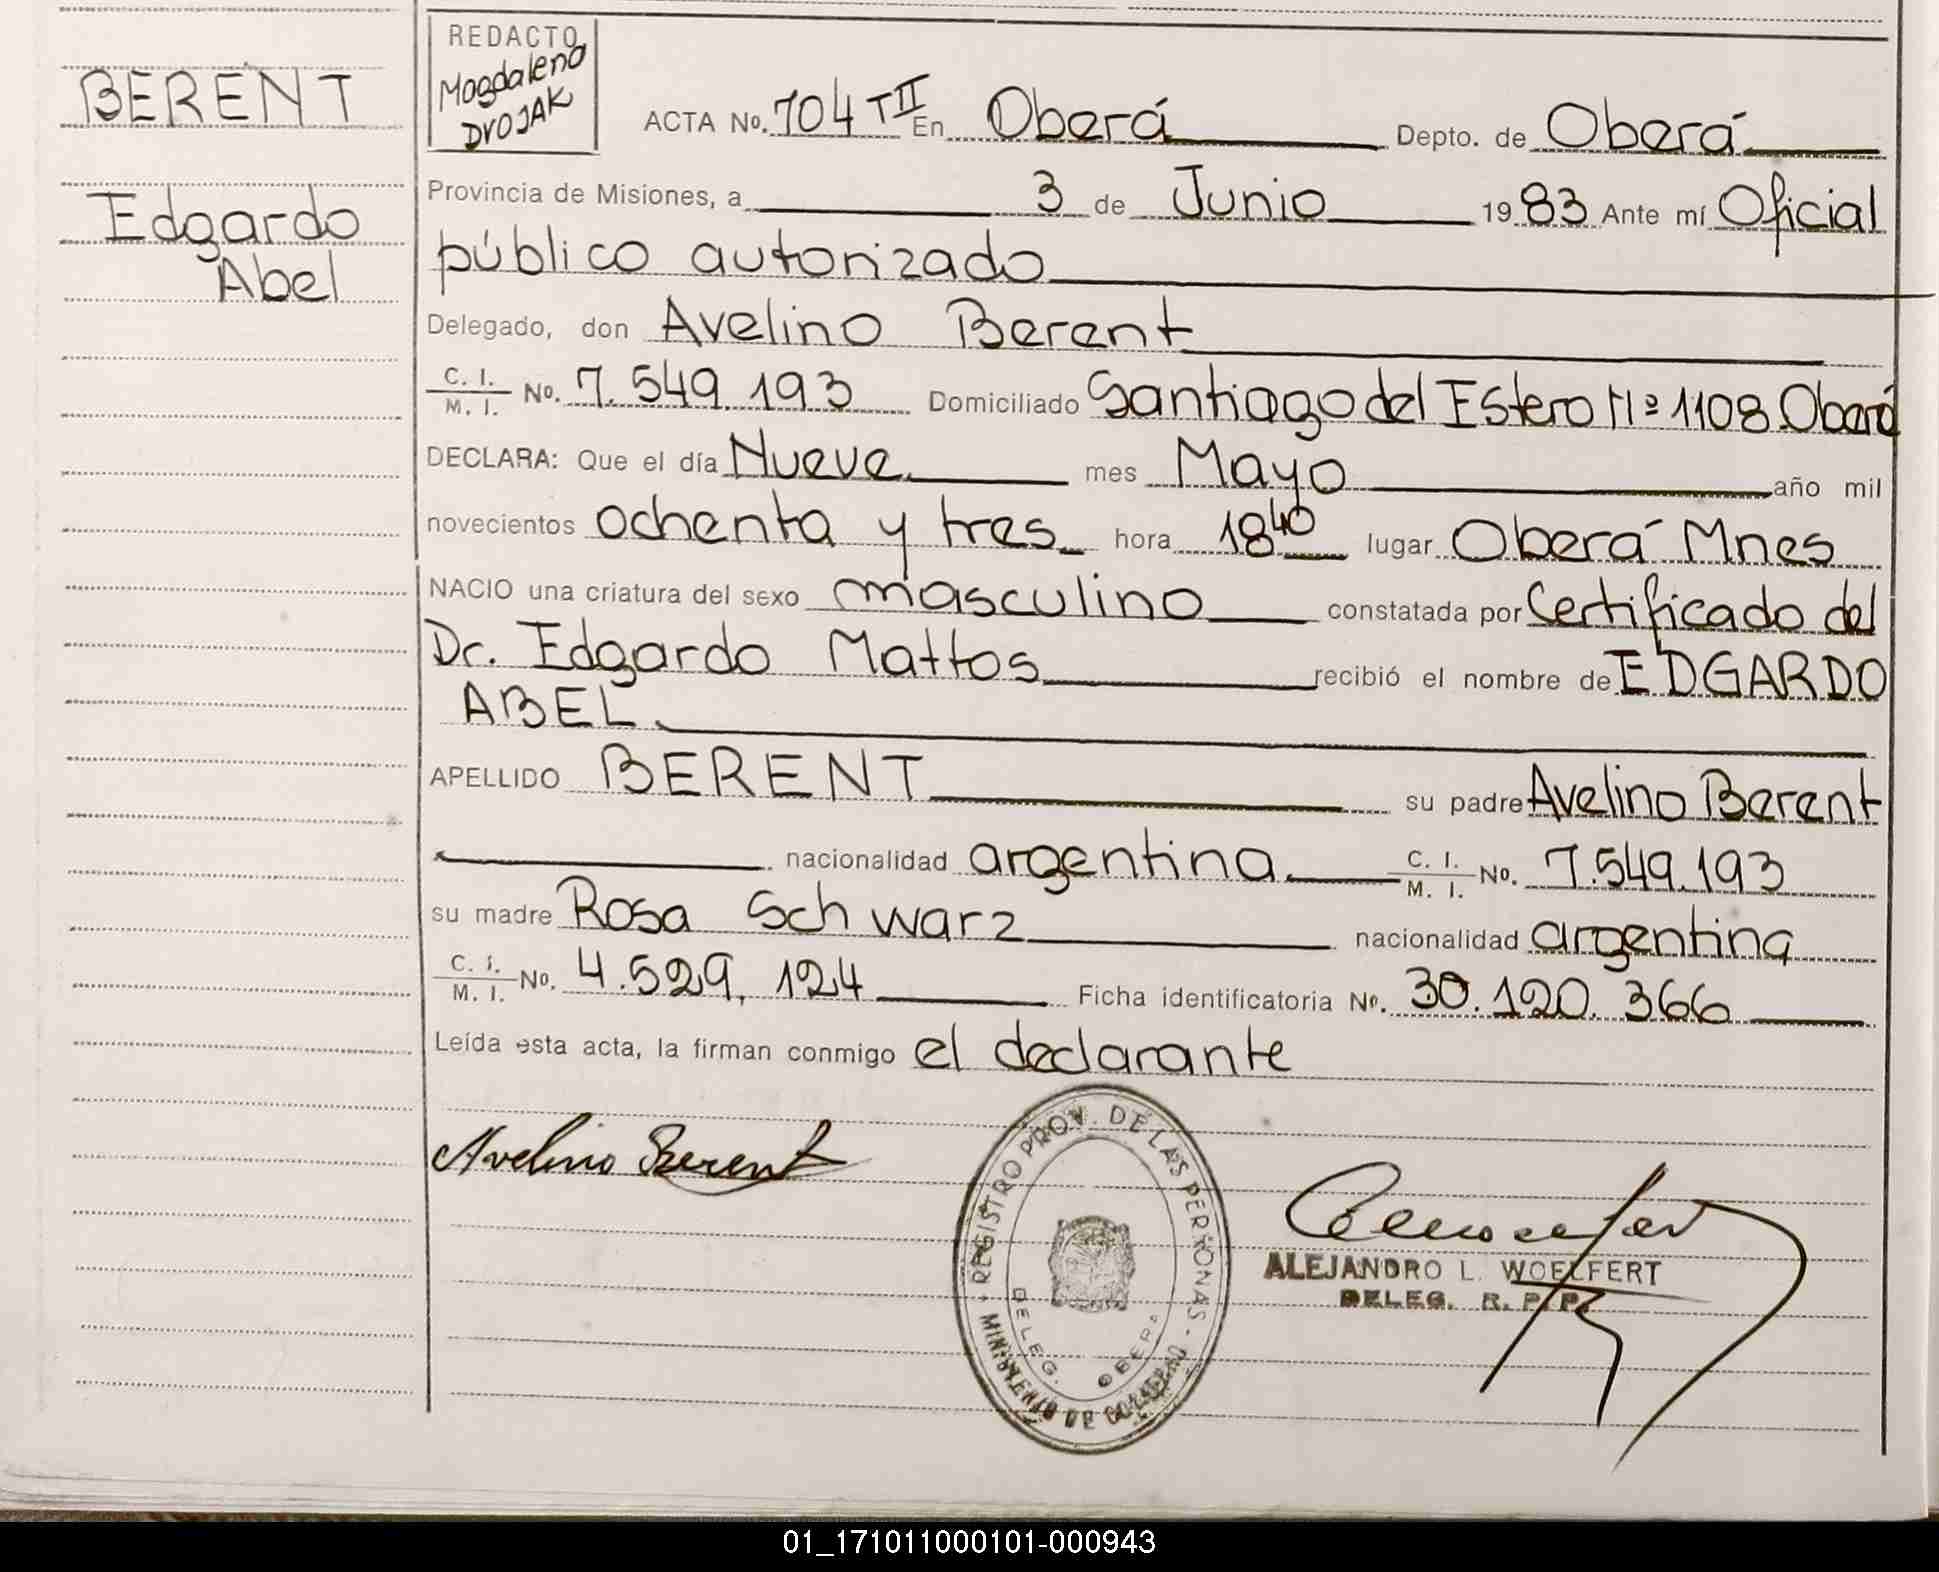 BERENT
Edgardo
Abel
REDACTO
Magdalena
DVOJAK
ACTA No. 704 TII En Oberá Depto. de Oberá
Provincia de Misiones, a 3 de Junio 1983 Ante mí Oficial
público autorizado
Delegado, don Avelino Berent
C. I. / M. I. No. 7.549.193 Domiciliado Santiago del Estero Nº 1108 Oberá
DECLARA: Que el día Nueve mes Mayo año mil
novecientos ochenta y tres hora 18 40 lugar Oberá Mnes
NACIO una criatura del sexo masculino constatada por Certificado del
Dr. Edgardo Mattos recibió el nombre de EDGARDO
ABEL
APELLIDO BERENT su padre Avelino Berent
nacionalidad argentina C. I. / M. I. No. 7.549.193
su madre Rosa Schwarz nacionalidad argentina
C. I. / M. I. No. 4.529.124 Ficha identificatoria No. 30.120.366
Leída esta acta, la firman conmigo el declarante
Avelino Berent
REGISTRO PROV. DE LAS PERSONAS - MINISTERIO DE GOBIERNO
DELEG. OBERA
ALEJANDRO L. WOELFERT
DELEG. R. P. P.
01_171011000101-000943